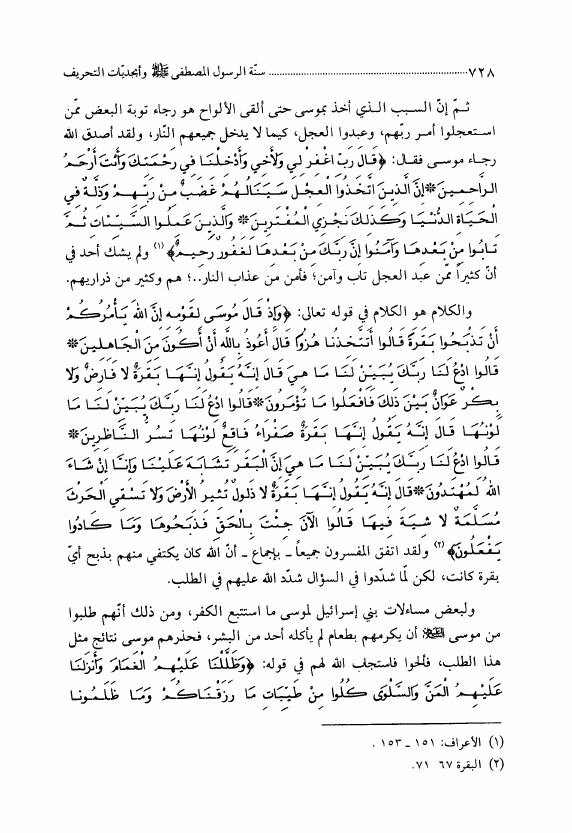 ٧٢٨ ............................................................ سنّة الرسول المصطفى ﷺ وأبجديّات التحريف
ثـمّ إنّ السبب الـذي أخذ بموسى حتى ألقى الألواح هو رجاء توبة البعض ممّن
استعجلوا أمـر ربّهم، وعبدوا العجل، كيما لا يدخل جميعهم النّار، ولقد أصدق الله
رجاء موسى فقـال: ﴿قَالَ رَبِّ اغْفِرْ لِي وَلأَخِي وَأَدْخِلْنَا فِي رَحْمَتِكَ وَأَنْتَ أَرْحَمُ
الرَّاحِمِينَ*إِنَّ الَّذِينَ اتَّخَذُوا الْعِجْلَ سَيَنَالُهُمْ غَضَبٌ مِنْ رَبِّهِمْ وَذِلَّةٌ فِي
الْحَيَاةِ الدُّنْيَا وَكَذَلِكَ نَجْزِي الْمُفْتَرِينَ* وَالَّذِينَ عَمِلُوا السَّيِّئَاتِ ثُمَّ
تَابُوا مِنْ بَعْدِهَا وَآمَنُوا إِنَّ رَبَّكَ مِنْ بَعْدِهَا لَغَفُورٌ رَحِيمٌ﴾ (١) ولم يشك أحد في
أنّ كثيراً ممّن عبد العجل تاب وآمن؛ فأمن من عذاب النار..؛ هم وكثير من ذراريهم.
والكلام هو الكلام في قوله تعالى: ﴿وَإِذْ قَالَ مُوسَى لِقَوْمِهِ إِنَّ اللهَ يَأْمُرُكُمْ
أَنْ تَذْبَحُوا بَقَرَةً قَالُوا أَتَتَّخِذُنَا هُزُوًا قَالَ أَعُوذُ بِاللَّهِ أَنْ أَكُونَ مِنَ الْجَاهِلِينَ*
قَالُوا ادْعُ لَنَا رَبَّكَ يُبَيِّنْ لَنَا مَا هِيَ قَالَ إِنَّهُ يَقُولُ إِنَّهَا بَقَرَةٌ لا فَارِضٌ وَلا
بِكْرٌ عَوَانٌ بَيْنَ ذَلِكَ فَافْعَلُوا مَا تُؤْمَرُونَ*قَالُوا ادْعُ لَنَا رَبَّكَ يُبَيِّنْ لَنَا مَا
لَوْنُهَا قَالَ إِنَّهُ يَقُولُ إِنَّهَا بَقَرَةٌ صَفْرَاءُ فَاقِعٌ لَوْنُهَا تَسُرُّ النَّاظِرِينَ*
قَالُوا ادْعُ لَنَا رَبَّكَ يُبَيِّنْ لَنَا مَا هِيَ إِنَّ الْبَقَرَ تَشَابَهَ عَلَيْنَا وَإِنَّا إِنْ شَاءَ
اللهُ لَمُهْتَدُونَ*قَالَ إِنَّهُ يَقُولُ إِنَّهَا بَقَرَةٌ لا ذَلُولٌ تُثِيرُ الأَرْضَ وَلا تَسْقِي الْحَرْثَ
مُسَلَّمَةٌ لا شِيَةَ فِيهَا قَالُوا الآنَ جِئْتَ بِالْحَقِّ فَذَبَحُوهَا وَمَا كَادُوا
يَفْعَلُونَ﴾ (٢) ولقد اتفق المفسرون جميعاً ـ بإجماع ـ أنّ الله كان يكتفي منهم بذبح أيّ
بقرة كانت، لكن لمّا شدّدوا في السؤال شدّد الله عليهم في الطلب.
ولبعض مساءلات بني إسرائيل لموسى ما استتبع الكفر، ومن ذلك أنّهم طلبوا
من موسى عليه السلام أن يكرمهم بطعام لم يأكله أحد من البشر، فحذرهم موسى نتائج مثل
هذا الطلب، فألحوا فاستجاب الله لهم في قوله: ﴿وَظَلَّلْنَا عَلَيْهِمُ الْغَمَامَ وَأَنْزَلْنَا
عَلَيْهِمُ الْمَنَّ وَالسَّلْوَى كُلُوا مِنْ طَيِّبَاتِ مَا رَزَقْنَاكُمْ وَمَا ظَلَمُونَا
(١) الأعراف: ١٥١ ـ ١٥٣ .
(٢) البقرة ٦٧ ٧١.